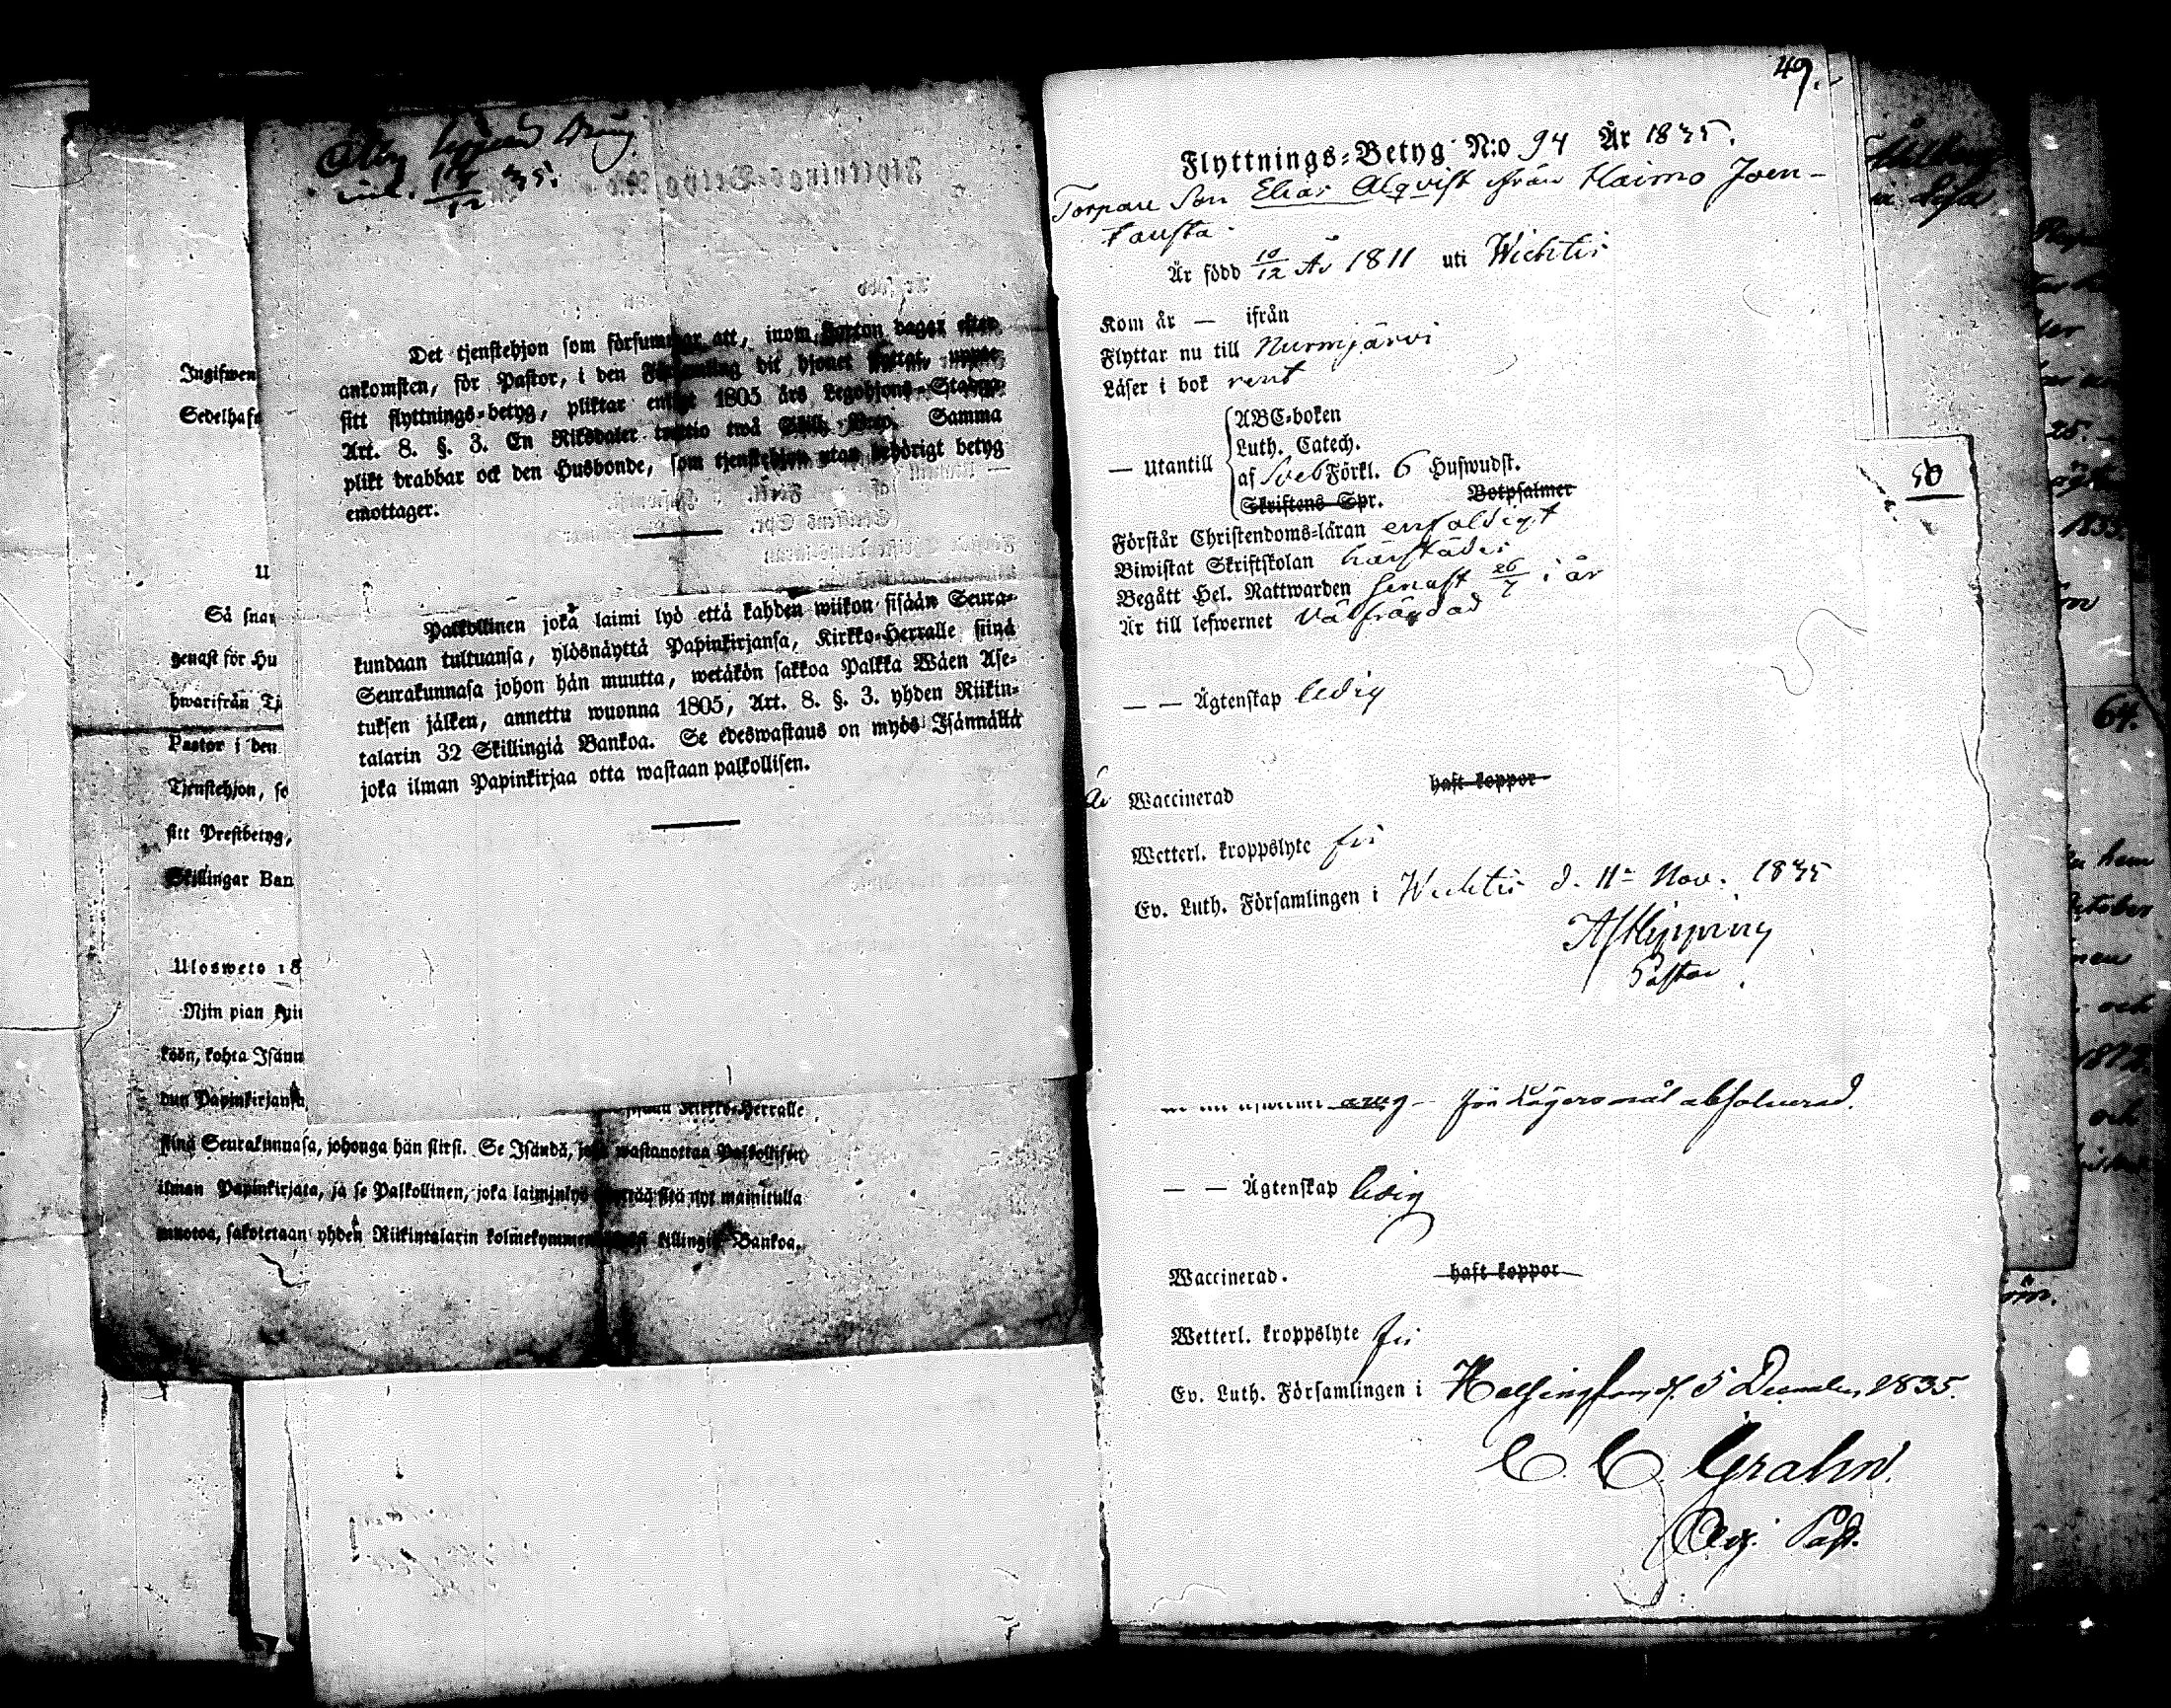 inl. 12 35.
Det tjenstehjon som försummar att, inom dagar efter
ankomsten, för Pastor, i den Församling dit hjonet flyttat, uppte
sitt flyttnings-betyg, pliktar enligt 1805 års Legohjons-Stadga
Art. 8. §. 3. En Riksdaler trettio twå Skill. Bco. Samma
plikt drabbar ock den Husbonde, som tjenstehjon utan behörigt betyg
emottager.
Palkollinen joka laimi lyö että kahden wiikon sisään Seura-
kundaan tultuansa, ylösnäyttä Papinkirjansa, Kirkko-Herralle siinä
Seurakunnasa johon hän muutta, wetäkön sakkoa Palkka Wäen Ase-
tuksen jälken, annettu wuonna 1805, Art. 8. §. 3. yhden Riikin-
talarin 32 Skillingiä Bankoa. Se edeswastaus on myös Isännällä
joka ilman Papinkirjaa otta wastaan palkollisen.
Ingifwen
Sedelhafw
U
Så snar
genast för Hu
hwarifrån Tj
Pastor i den
Tjenstehjon, so
sitt Prestbetyg,
Skillingar Ban
Ulosweto 18
Niin pian kuin
köön, kohta Isänn
dun Papinkirjansa
Kirkko-Herralle
siinä Seurakunnasa, johonga hän siirsi. Se Isändä, joka wastanottaa Palkollisen
ilman Papinkirjata, ja se Palkollinen, joka laiminlyö sitä nyt mainitulla
muotoa, sakotetaan yhden Riikintalarin kolmekymmentä killingiä Bankoa.
49.
Flyttnings-Betyg N:o 94 År 1835.
Torpare Son Elias Alqvist ifrån Haimo Joen-
tausta
Är född 10/12 År 1811 uti Wichtis
Kom år — ifrån
Flyttar nu till Nurmjärvi
Läser i bok rent
— Utantill
ABC-boken
Luth. Catech.
af Sveb Förkl. 6 Hufwudst.
Skriftens Spr. Botpsalmer
Förstår Christendoms-läran enfaldigt
Biwistat Skriftskolan härstädes
Begått Hel. Nattwarden senast 26/7 i år
Är till lefwernet välfrägdad
— — Ägtenskap ledig
Är Waccinerad haft koppor
Wetterl. kroppslyte fri
Ev. Luth. Församlingen i Wichtis d. 11te Nov. 1835
A J Hipping
Pastor.
för Lägersmål absolverad.
— — Ägtenskap ledig
Waccinerad. haft koppor
Wetterl. kroppslyte fri
Ev. Luth. Församlingen i Helsingfors d. 5 December 1835.
C. C. Grahn.
Adj. Past.
50
25.
1835.
64.
hem
October
och
och